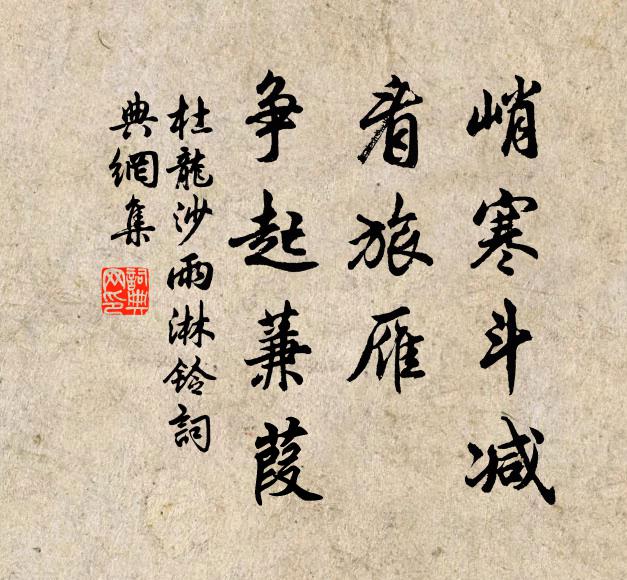 峭寒斗減
看旅雁
争起蒹葭
杜龍沙雨淋鈴詞
典網集
詞典網印